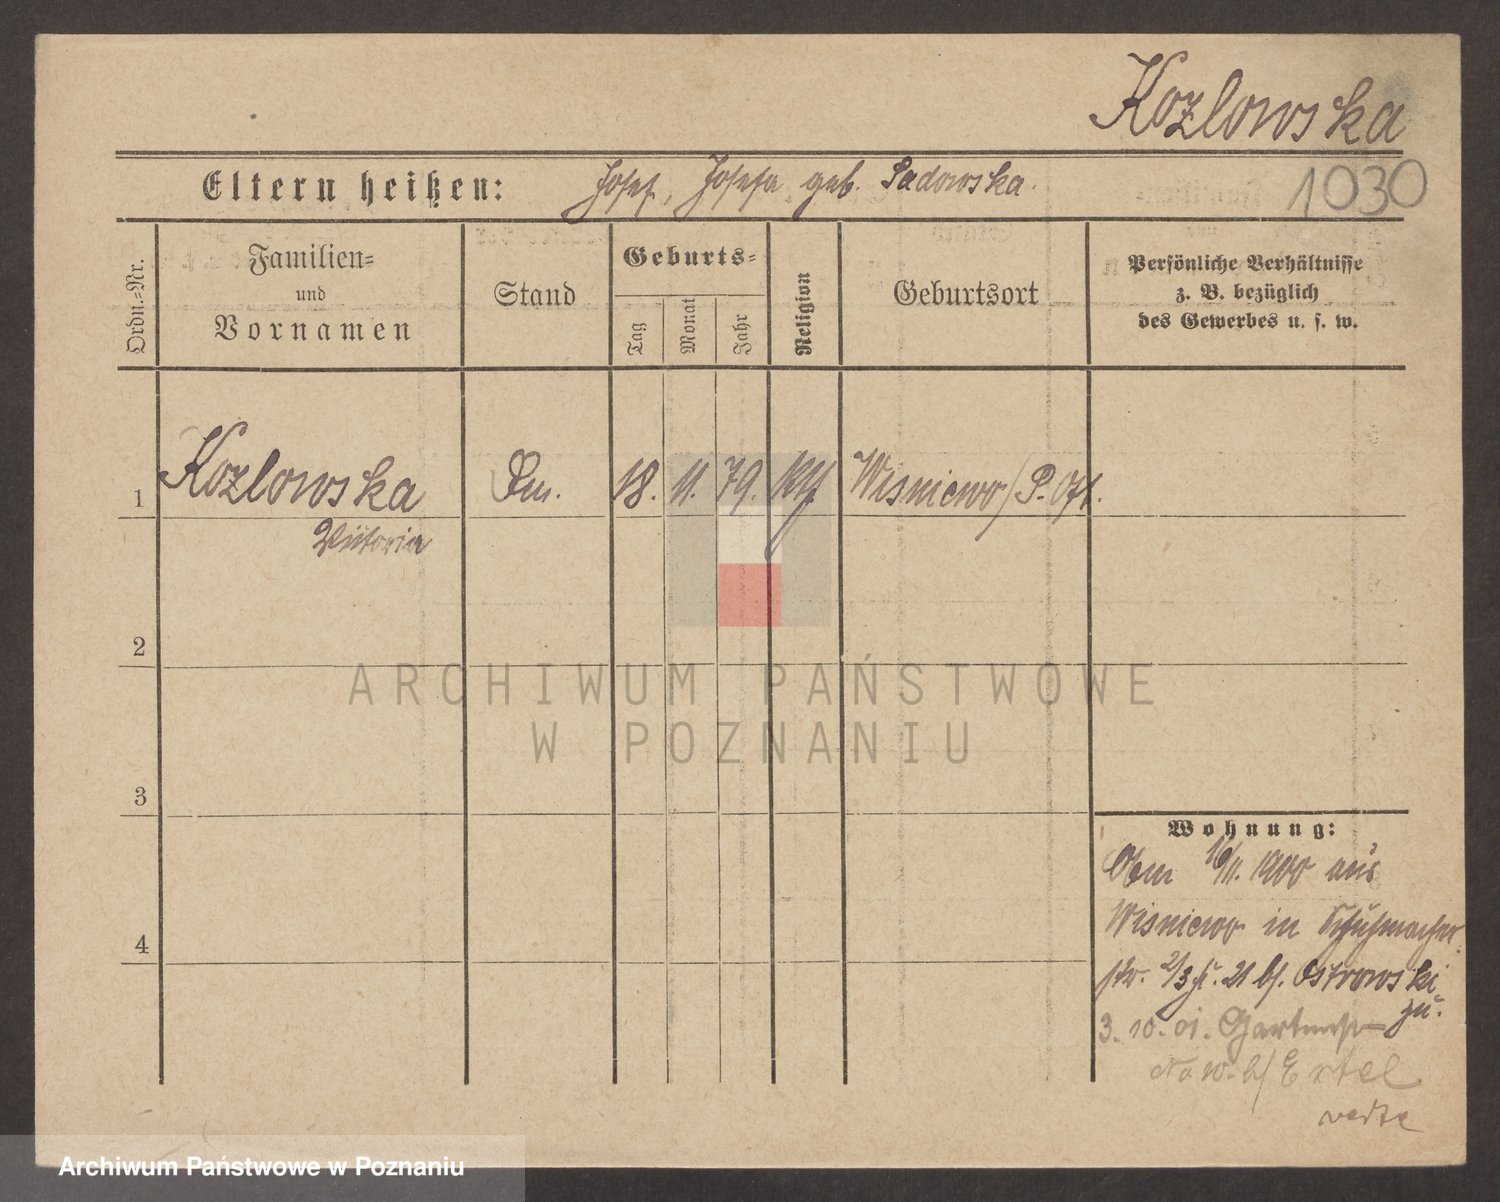 Kozlowska
Eltern heißen: Josef, Josefa geb. Sadowska.
1030
Ordn.-Nr.
Familien-
und
Vornamen
Stand
Geburts-
Tag
Monat
Jahr
Religion
Geburtsort
Persönliche Verhältnisse
z. B. bezüglich
des Gewerbes u. s. w.
1 Kozlowska 18. 11. 79. kth Wisniewo/P. Oft.
Viktoria
2
ARCHIWUM PAŃSTWOWE
W POZNANIU
3
Wohnung:
1900 aus
Wisniewo in Schuhmacher
str. 2/3 II. 21 bf. Ostrowski
zu.
3. 10. 01. Gartenstr
No w. b/ Ertel
4
Archiwum Państwowe w Poznaniu